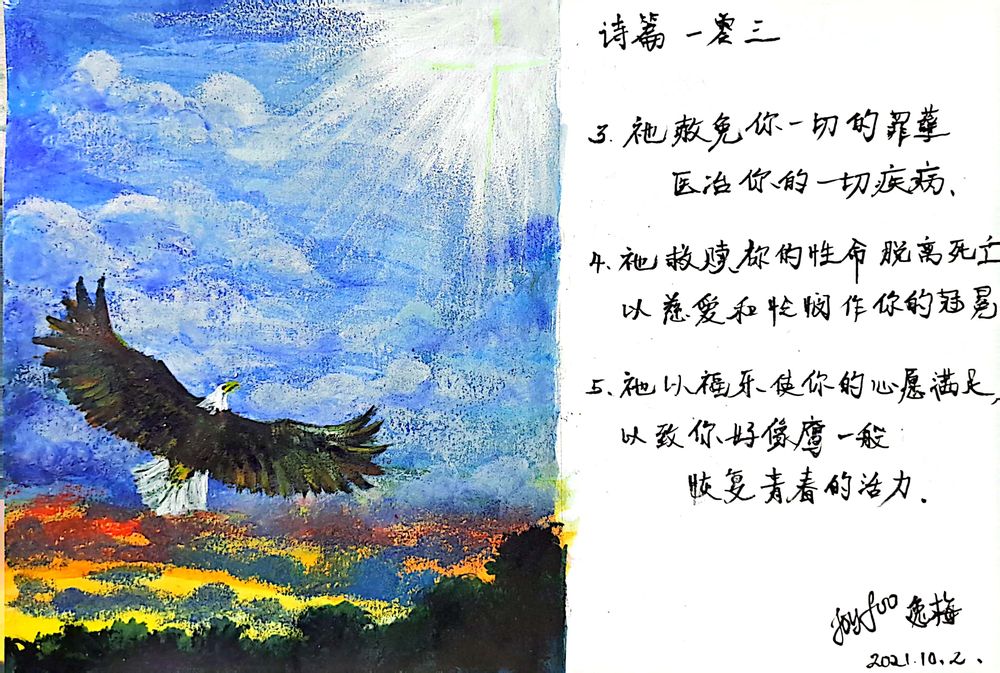 诗篇 一零三
3. 祂赦免你一切的罪孽
医治你的一切疾病、
4. 祂救赎你的性命 脱离死亡
以慈爱和怜悯作你的冠冕
5. 祂以福乐使你的心愿满足,
以致你好像鹰一般
恢复青春的活力.
逸梅
2021.10.2.